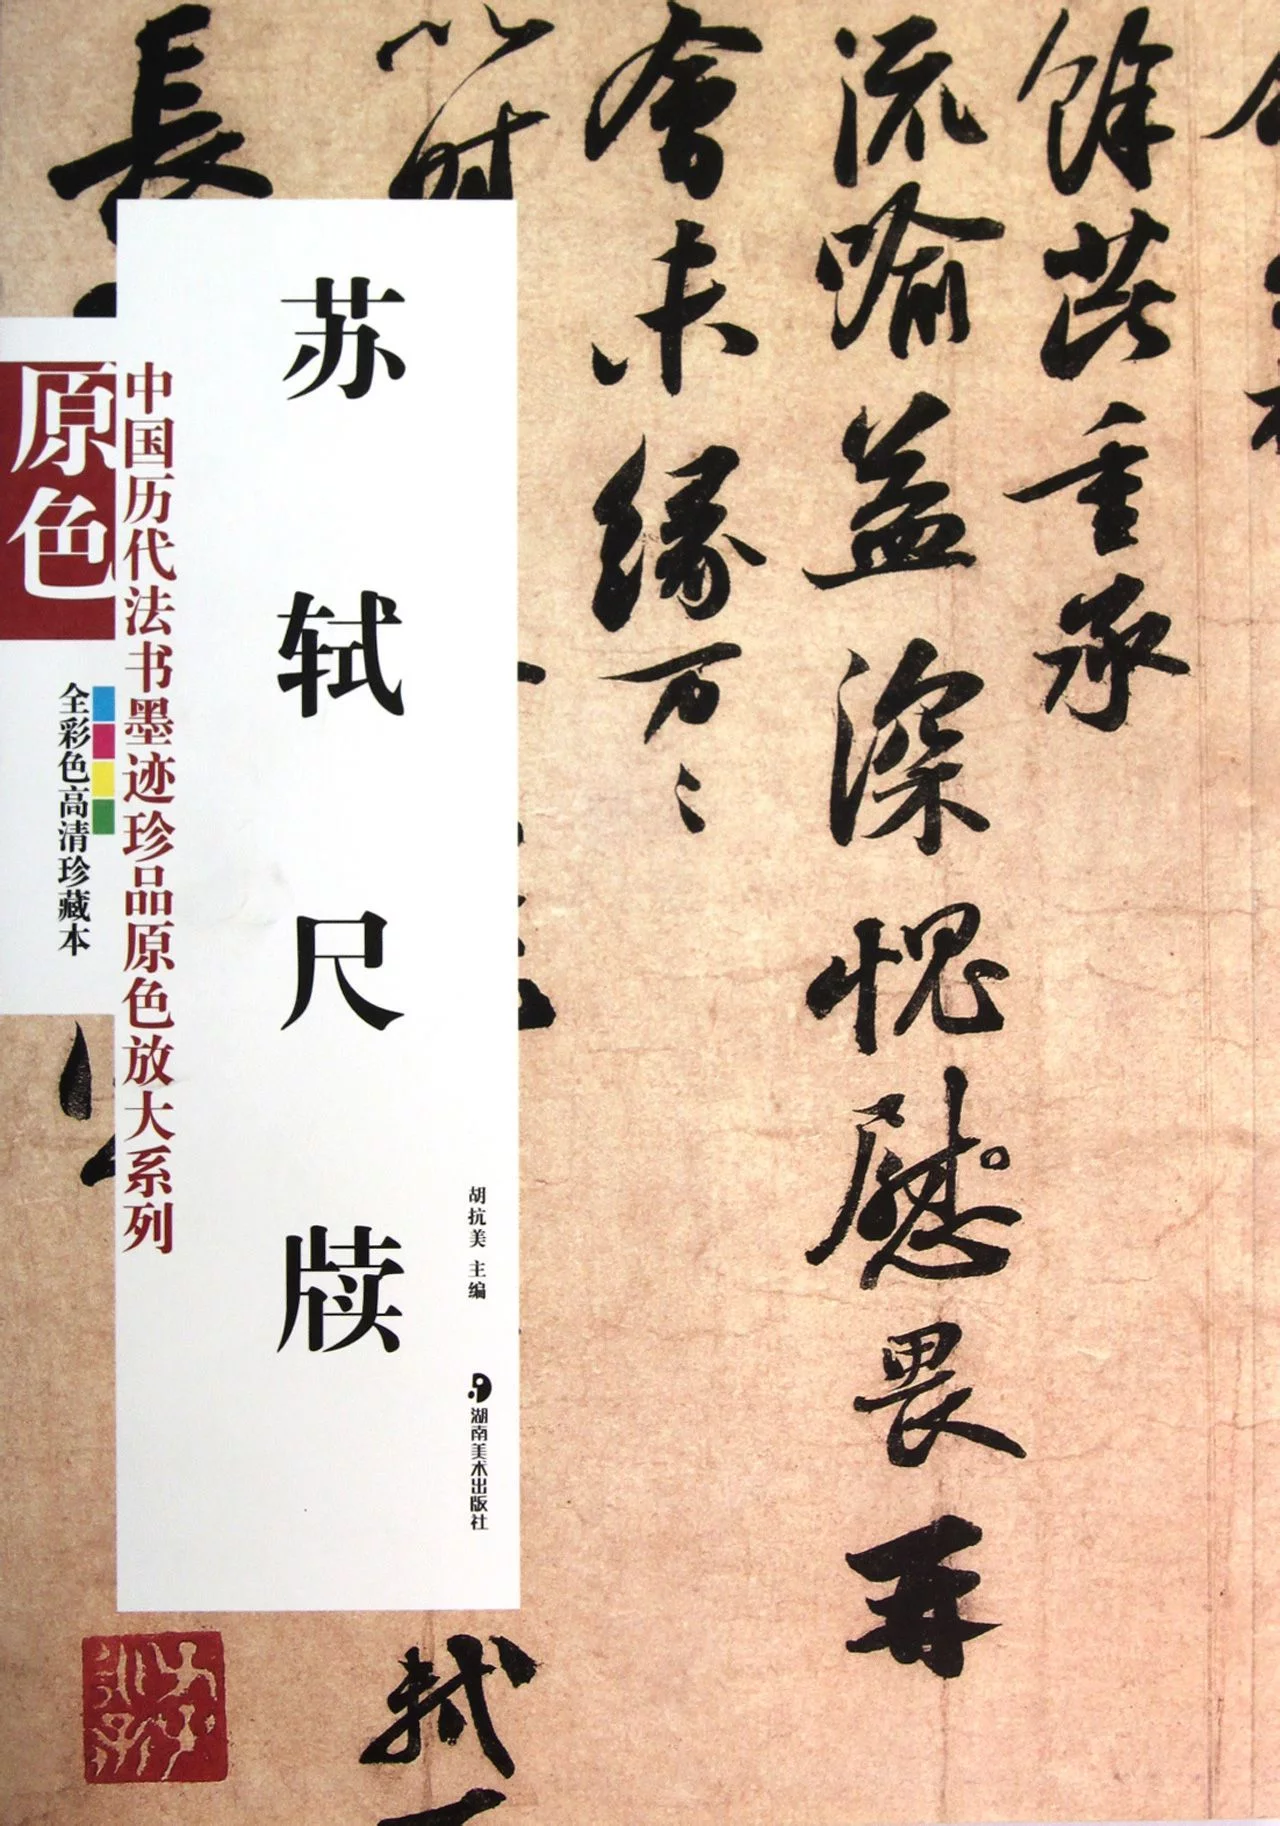 苏轼尺牍
中国历代法书墨迹珍品原色放大系列
原色
全彩色高清珍藏本
胡抗美 主编
湖南美术出版社
餘芘重承
流喻益深愧慰畏再
會未緣万〻
以時
軾
長